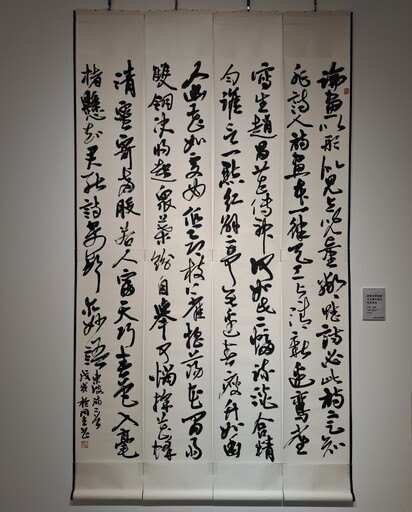 論畫以形似見與兒童鄰賦詩必此詩定知
非詩人詩畫本一律天工與清新邊鸞雀
寫生趙昌花傳神何如此兩幅疏淡含精
勻誰言一點紅解寄無邊春瘦竹如幽
人幽花如處女低昂枝上雀搖蕩花間雨
雙翎決將起眾葉紛自舉可憐採花蜂
清蜜寄兩股若人富天巧春色入毫
楮懸知君能詩寄聲求妙語
東坡詩二首